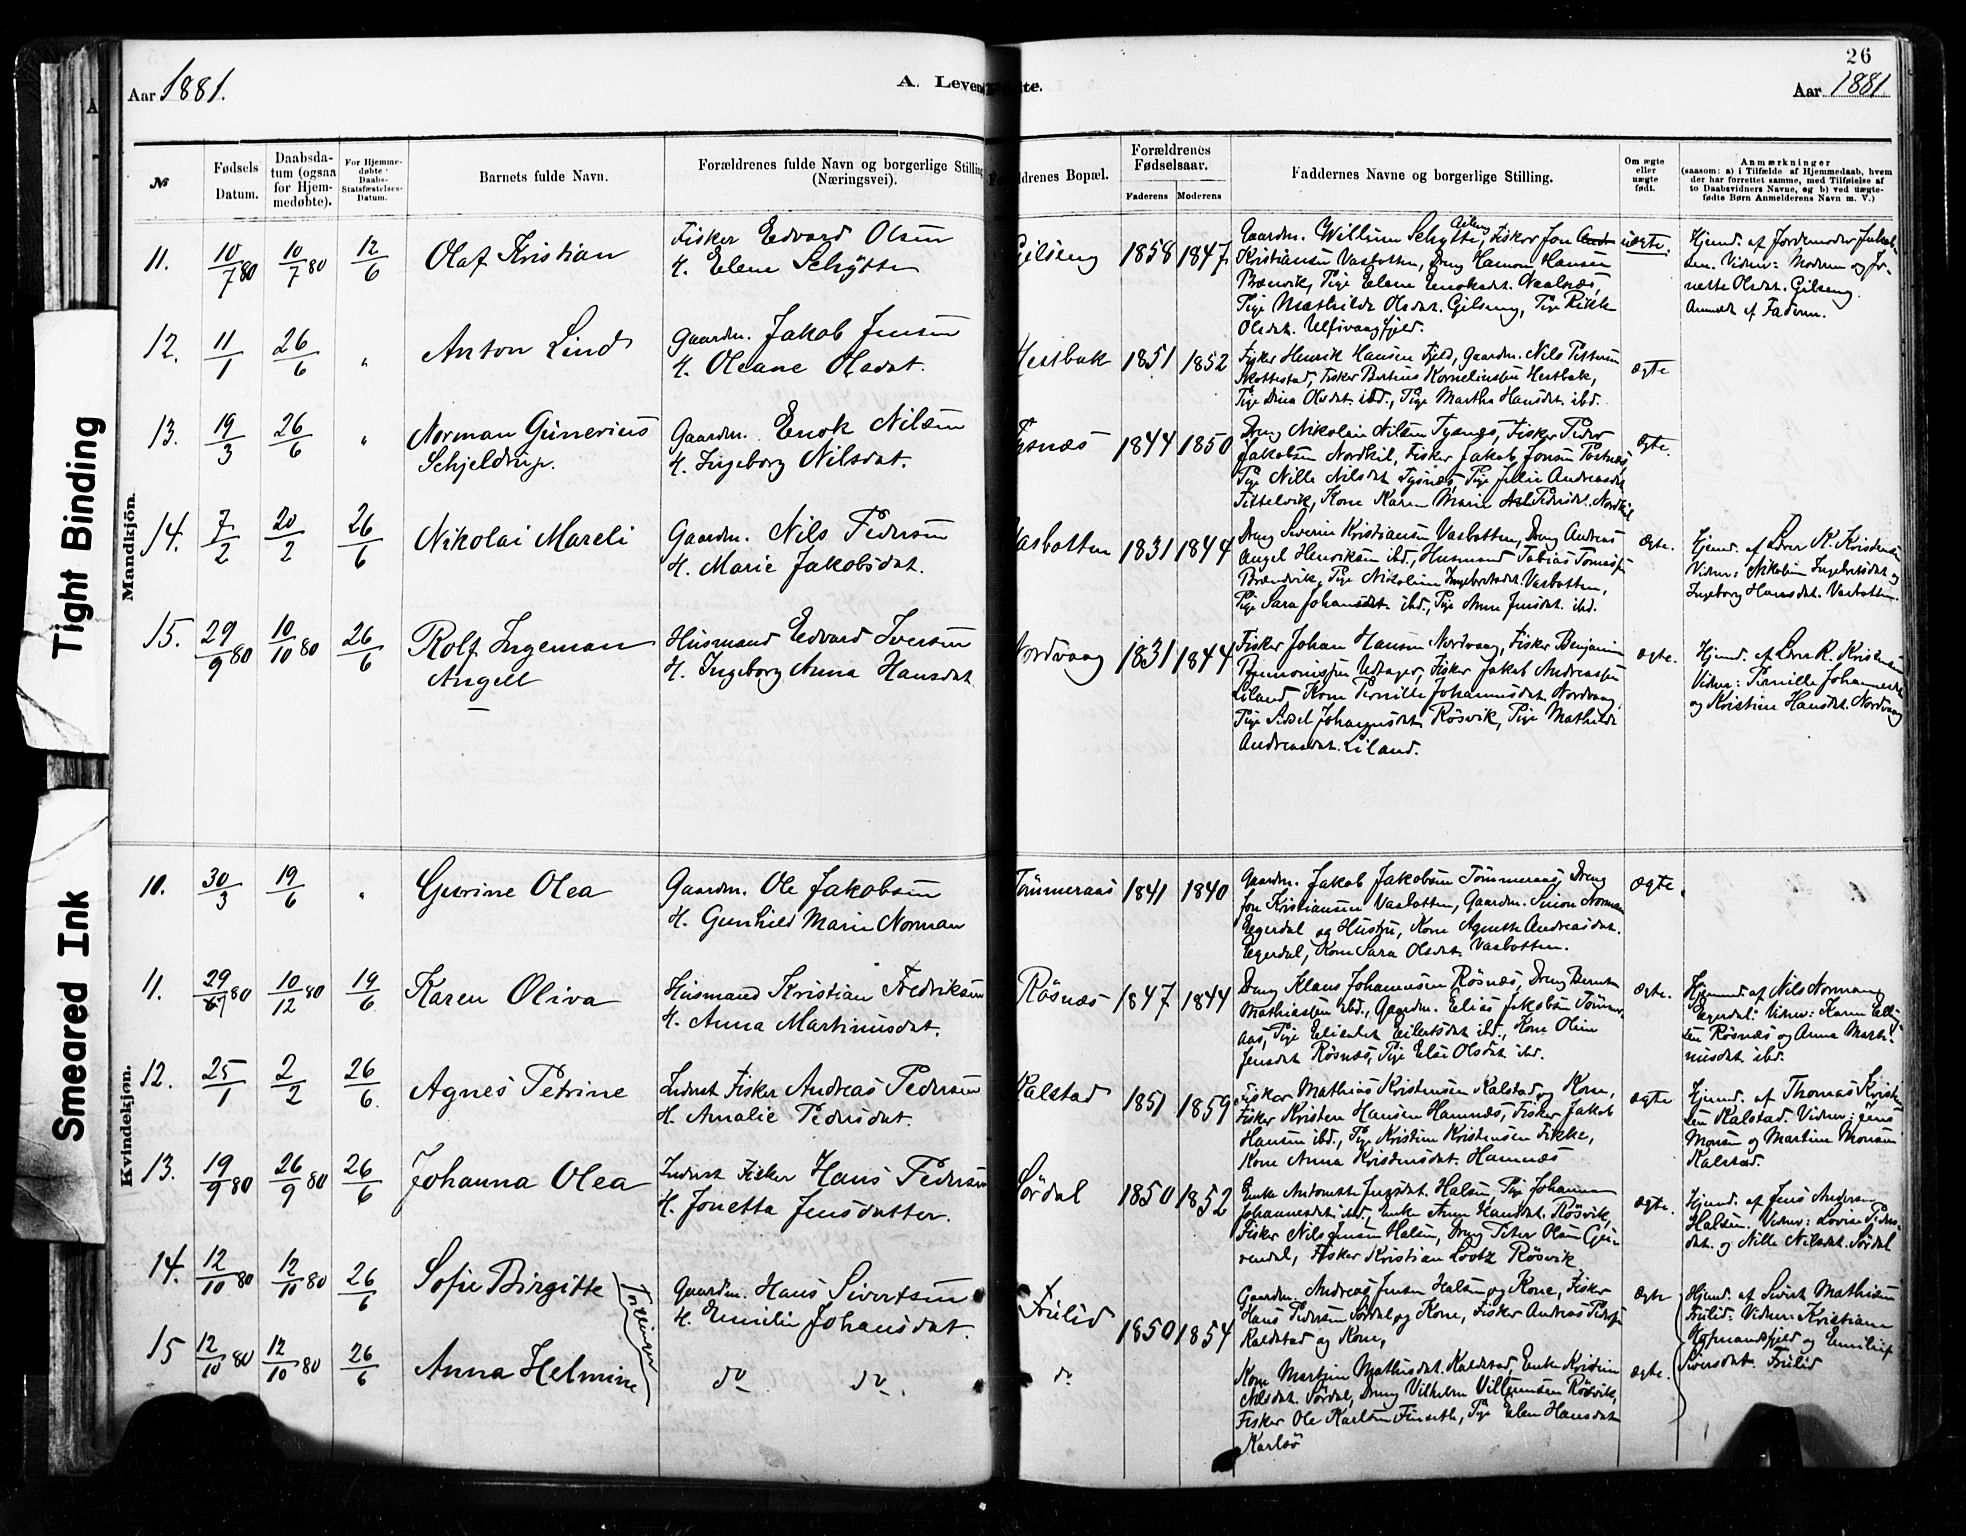 26
Aar 1881.
A. Levendefødte.
Aar 1881
№
Fødsels Datum.
Daabsdatum (ogsaa for Hjemmedøbte).
For Hjemmedøbte Daabs-Statsfæstelses-Datum.
Barnets fulde Navn.
Forældrenes fulde Navn og borgerlige Stilling (Næringsvei).
Forældrenes Bopæl.
Forældrenes Fødselsaar.
Faderens
Moderens
Faddernes Navne og borgerlige Stilling.
Om ægte eller uægte født.
Anmærkninger
(saasom: a) i Tilfælde af Hjemmedaab, hvem der har forrettet samme, med Tilføielse af to Daabsvidners Navne, og b) ved uægtefødte Børn Anmelderens Navn m. V.)
Tight Binding
Smeared Ink
Mandkjön.
11. 10/7 80 10/7 80 12/6 Olaf Kristian
Fisker Edvard Olsen
H. Elene Schytte
Gilseng 1858 1847
Gaardm. Willum Schytte, Gilseng, Fisker Jon
Kristiansen Vasbotten, Dreng Hamon Hansen
Brænvik, Pige Elene Enoksdt. Naalnæs,
Pige Mathilde Olsdat. Gilseng, Pige Rikke
Olsdat. Ulfsvaagfjeld.
uægte.
Hjemd. af Jordemoder Jakob-
sen. Vidner: Moderen og Jo-
nette Olsdat. Gilseng.
Anmeldt af Faderen.
12. 11/1 26/6 " Anton Lind
Gaardm. Jakob Jensen
H. Oleane Olsdat.
Hestbak 1851 1852
Fisker Henrik Hansen Fjeld, Gaardm. Nils Pettersen
Skottestad, Fisker Bertius Korneliussen Hestbak,
Pige Dina Olsdat. ibd., Pige Martha Hansdt. ibd.
ægte
13. 19/3 26/6 " Norman Gunerius
Schjeldrup.
Gaardm. Enok Nilsen
H. Ingeborg Nilsdat.
Tysnæs 1844 1850
Dreng Nikolai Nilsen Tysnæs, Fisker Peder
Jakobsen Nordkil, Fisker Jakob Jonsen
Pige Nille Nilsdat Tysnæs, Pige Julie Andreasdt
Tittelvik, Kone Karen Marie Pedersdt. Nordkil
ægte.
14. 7/2 20/2 26/6 Nikolai Mareli
Gaardm. Nils Pedersen
H. Marie Jakobsdat.
Vasbotten 1831 1844
Dreng Severin Kristiansen Vasbotten, Dreng Andreas
Angel Henriksen ibd., Husmand Tobias
Brændvik, Pige Nikoline Ingebrtsdat. Vasbotten,
Pige Sara Johansdat. ibd., Pige Anne Jensdat. ibd.
ægte.
Hjemd. af Lærer R. Kristensen
Vidner: Nikoline Ingebrtsdat og
Ingeborg Hansdat. Vasbotten.
15. 29/9 80 10/10 80 26/6 Rolf Ingeman
Angell
Husmand Edvard Iversen
H. Ingeborg Anna Hansdat
Nordvaag 1831 1844
Fisker Johan Hansen Nordvaag, Fisker Benjamin
Fisker Jakob Andreassen
Liland Kone Pernille Johannesdat. Nordvaag,
Pige Sidsel Johannesdat, Røsvik, Pige Mathilde
Andreasdat. Liland.
ægte.
Hjemd. af Lærer R. Kristensen
Vidner: Pernille Johannesdt
og Kristine Hansdat. Nordvaag
Kvindekjøn.
10. 30/3 19/6 " Gurine Olea
Gaardm. Ole Jakobsen
H. Gunhild Marie Norman
Tømmeraas 1841 1840
Gaardm. Jakob Jakobsen Tømmeraas, Dreng
Jon Kristiansen Vasbotten, Gaardm. Simon Norman
Eegerdal og Hustru, Kone Agnethe Andreasdat.
Eegerdal, Kone Sara Olsdat. Vasbotten.
ægte.
11. 29/7 80 10/12 80 19/6 Karen Oliva
Husmand Kristian Fredriksen
H. Anna Martinusdat.
Røsnæs 1847 1844
Dreng Klaus Johannesen Røsnæs, Dreng Bernt
Mathiassen ibd., Gaardm. Elias Jakobsen Tømmer-
aas, Pige Elisabet Eilertsdat ibd., Kone Oline
Jensdat Røsnæs, Pige Else Olsdat. ibd.
ægte.
Hjemmed. af Nils Norman
Eegerdal. Vidner: Karen
Røsnæs og Anna Marti-
nusdat ibd.
12. 25/1 2/2 26/6. Agnes Petrine
Inderst Fisker Andreas Pedersen
H. Amalie Pedersdat.
Kalstad 1851 1859
Fisker Mathias Kristensen Kalstad og Kone,
Fisker Kristen Hansen Hamnæs, Fisker Jakob
Hansen ibd., Pige Kristine Kristensen
Kone Anna Kristensdat. Hamnæs
ægte
Hjemd. af Thomas Krist-
sen Kalstad. Vidner: Jens
Monsen og Martin Monsen
Kalstad.
13. 19/9 80 26/9 80 26/6 Johanna Olea
Inderst Fisker Hans Pedersen
H. Jonetta Jensdatter.
Sørdal 1850 1852
Enke Antonette Jensdat. Halsen, Pige Johanna
Johannesdat. ibd., Enke Anne Hansdat. Røsvik,
Fisker Nils Jensen Halsen, Dreng Peter Olsen
Fisker Kristian Lootz Røsvik
ægte.
Hjemd. af Jens Andersen
Halsen. Vidner: Lovise Peders-
dat. og Nille Nilsdat. Sørdal
14. 12/10 80 12/10 80 26/6 Sofie Birgitte
Tvillinger
Gaardm. Hans Sivertsen
H. Emilie Johansdat.
Frilid 1850 1854
Gaardm. Andreas Jensen Halsen og Kone, Fisker
Hans Pedersen Sørdal og Kone, Fisker Andreas Peders.
Kaldstad og Kone,
ægte
Hjemd. af Sivert Mathisen
Frilid. Vidner: Kristiane
og Emilie
Siversdat. Frilid
15 12/10 80 12/10 80 26/6 Anna Helmine
do do.
do
Kone Martine Mathisdat. Kaldstad, Enke Kristine
Nilsdat. Sørdal, Dreng Vilhelm Villumsen Røsvik,
Fisker Ole Karlsen Finseth, Pige Elen Hansdat.
Karlsø
ægte.